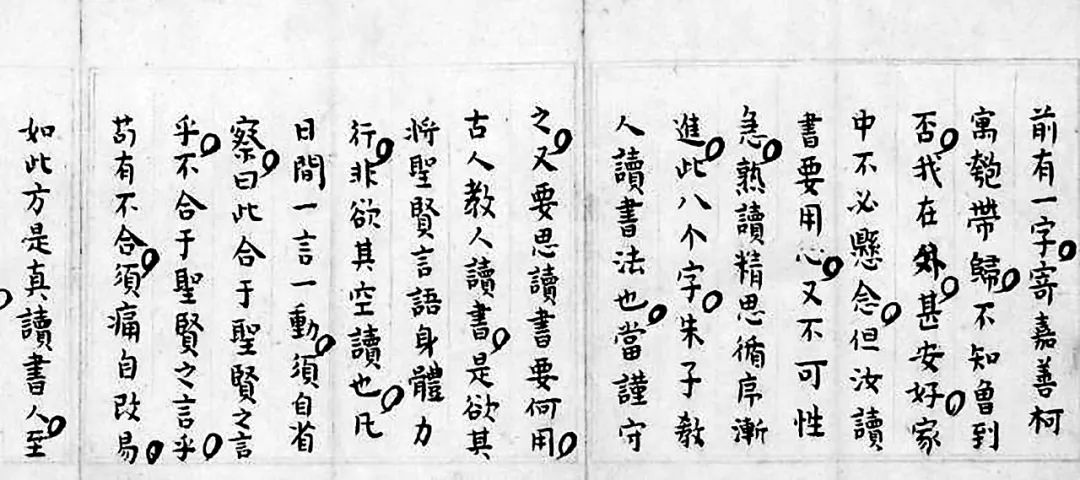 前有一字寄嘉善柯
寓匏帶歸不知曾到
否我在外甚安好家
中不必懸念但汝讀
書要用心又不可性
急熟讀精思循序漸
進此八个字朱子教
人讀書法也當謹守
之又要思讀書要何用
古人教人讀書是欲其
將聖賢言語身體力
行非欲其空讀也凡
日間一言一動須自省
察曰此合于聖賢之言
乎不合于聖賢之言乎
苟有不合須痛自改易
如此方是真讀書人至